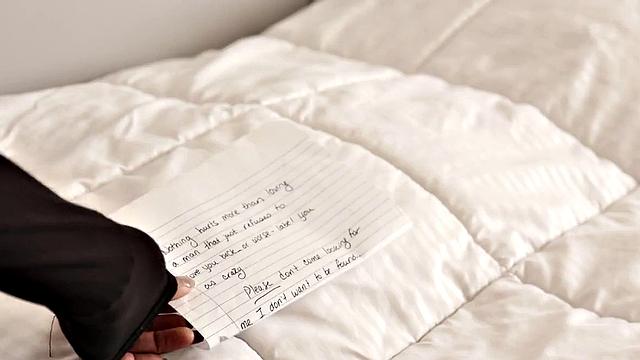 nothing hurts more than loving
a man that just refuses to
love you back or worse - label you
as crazy
Please don't come looking for
me I don't want to be found...